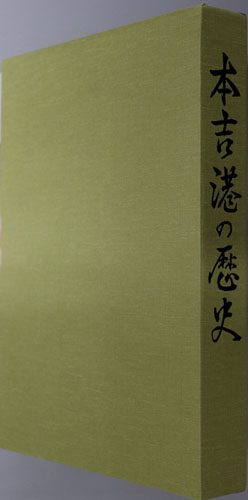 本吉港の歴史